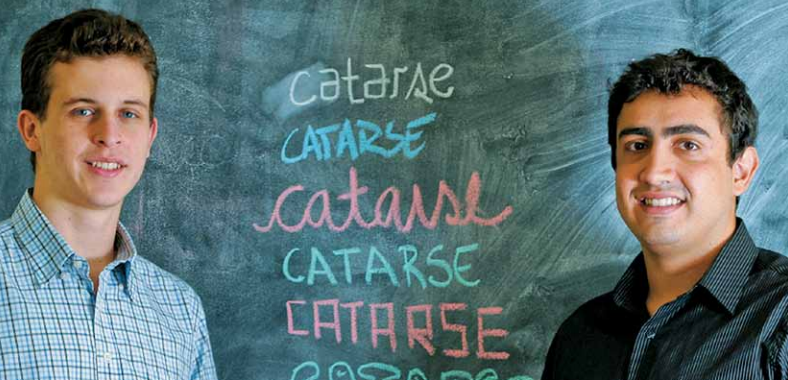 catarse
CATARSE
catarse
CATARSE
CATARSE